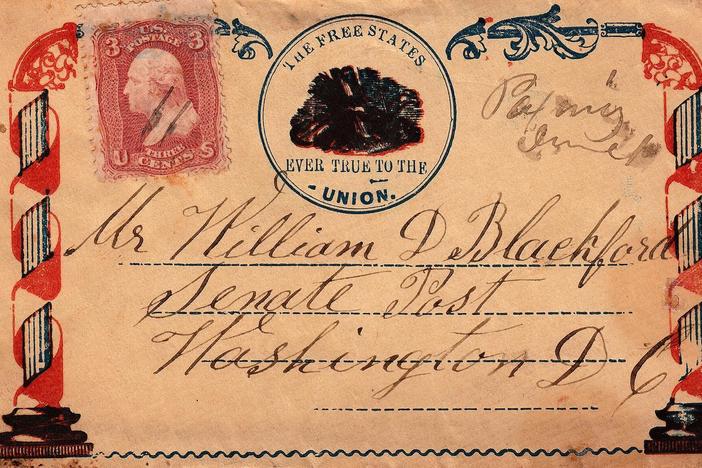 3 U.S. 3
POSTAGE
THREE
U CENTS S
THE FREE STATES
EVER TRUE TO THE
- UNION.
Mr William D Blackford
Senate Post
Washington D C